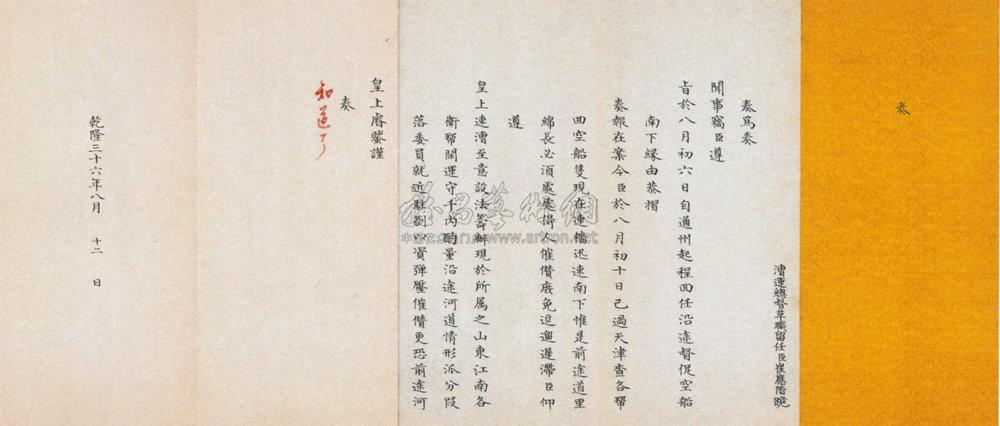 奏
漕運總督革職留任臣崔應階跪
奏為奏
聞事竊臣遵
旨於八月初六日自通州起程回任沿途督促空船
南下緣由恭摺
奏報在案今臣於八月初十日已過天津查各幫
回空船隻現在連檣迅速南下惟是前途道里
綿長必須處處得人催儹庶免逗遛遲滯臣仰
遵
皇上速漕至意設法籌辦現於所属之山東江南各
衛幫閒運守千內酌量沿途河道情形派分段
落委員就近駐劄以資彈壓催儹更恐前途河
皇上睿鑒謹
奏
知道了
乾隆三十六年八月 十二 日
www.artron.net